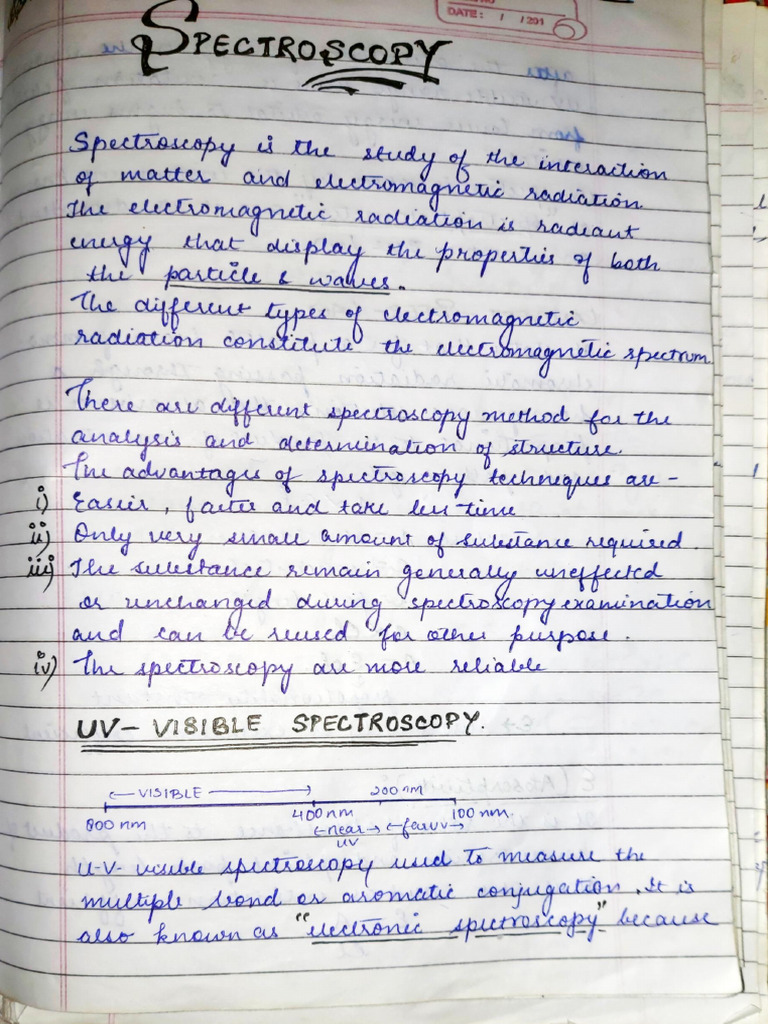 DATE: / /201
SPECTROSCOPY
Spectroscopy is the study of the interaction
of matter and electromagnetic radiation.
The electromagnetic radiation is radiant
energy that display the properties of both
the particle & waves.
The different types of electromagnetic
radiation constitute the electromagnetic spectrum.
There are different spectroscopy method for the
analysis and determination of structure.
The advantages of spectroscopy techniques are -
i) Easier, faster and take less time
ii) Only very small amount of substance required.
iii) The substance remain generally uneffected
or unchanged during spectroscopy examination
and can be reused for other purpose.
iv) The spectroscopy are more reliable
UV- VISIBLE SPECTROSCOPY.
← VISIBLE → 200 nm
800 nm 400 nm 100 nm
←near→ ←far UV→
UV
U-V- visible spectroscopy used to measure the
multiple bond or aromatic conjugation. It is
also known as "electronic spectroscopy" because